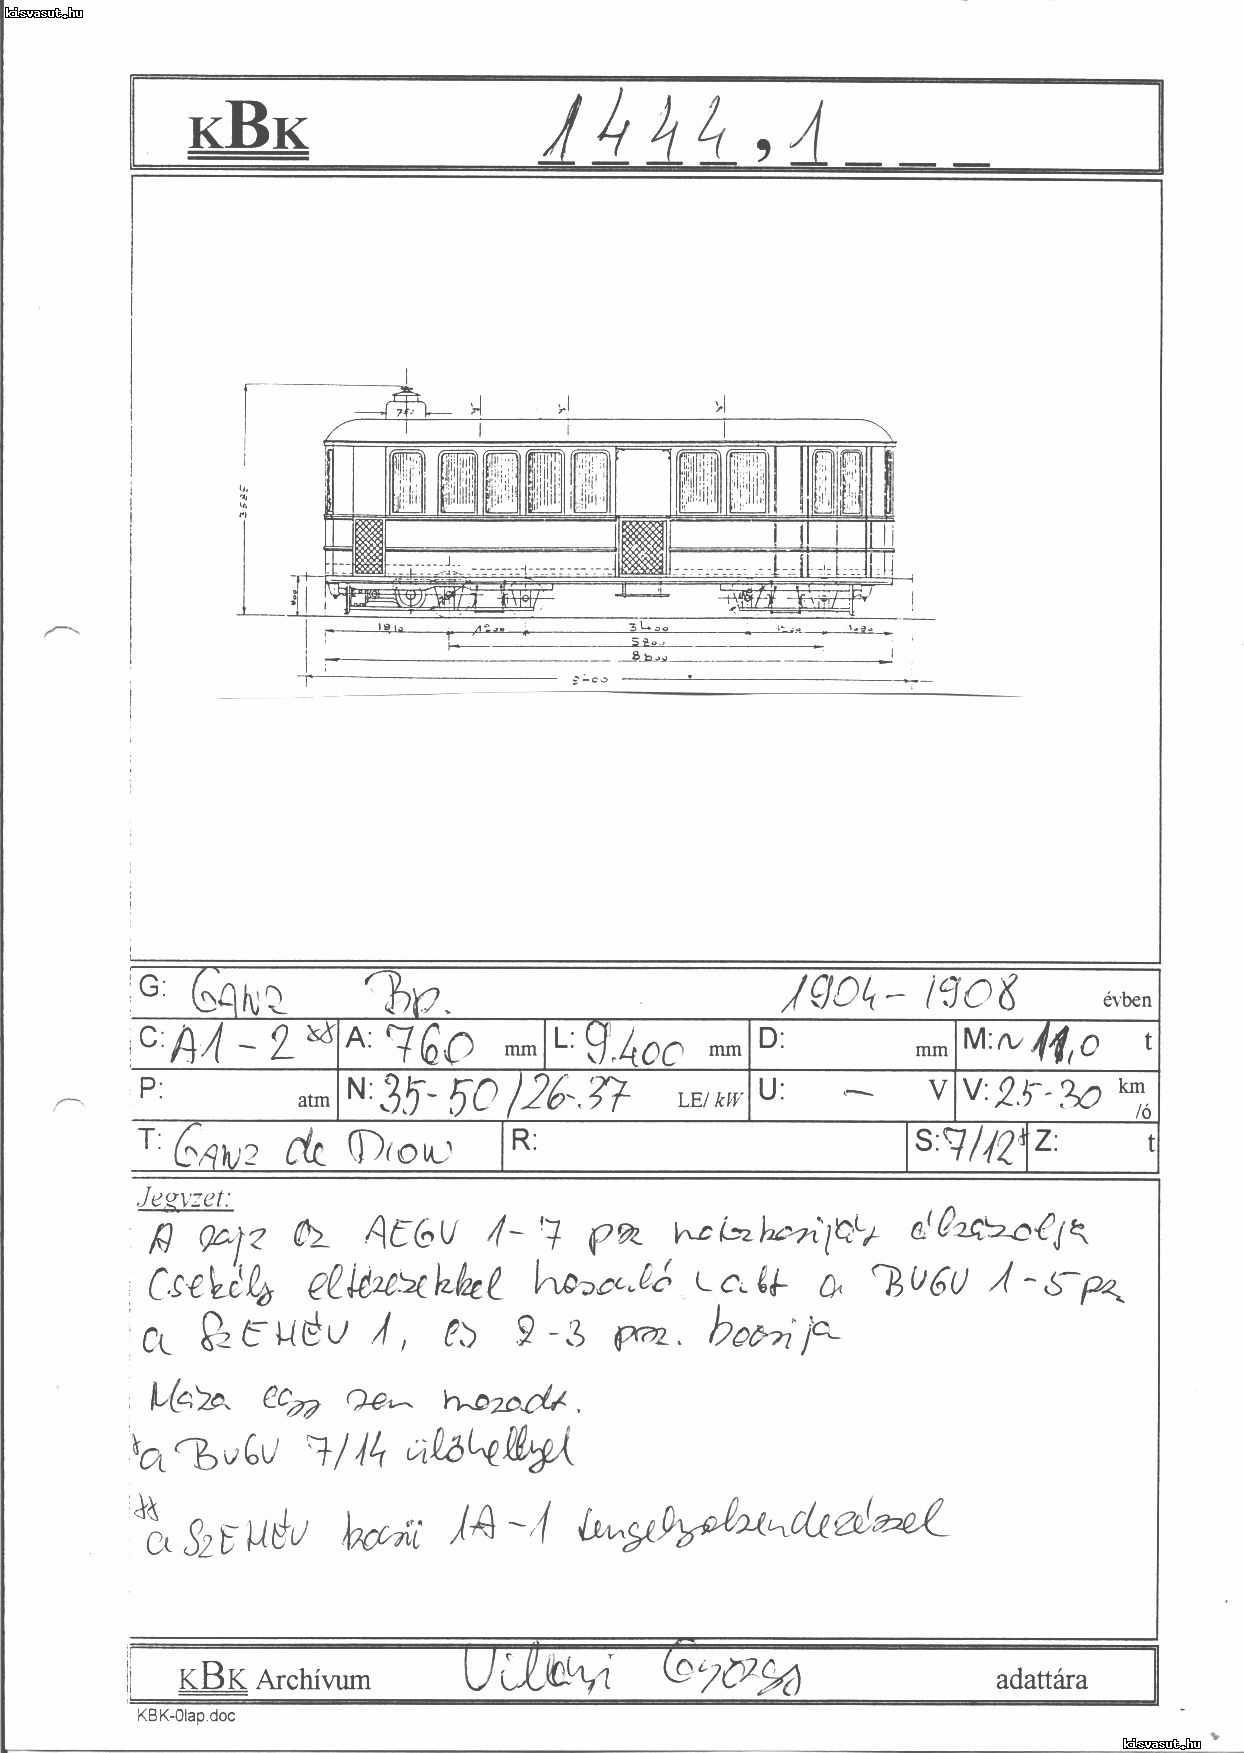 kisvasut.hu
KBK 1444,1
3400
G: GANZ Bp. 1904-1908 évben
C: A1-2** A: 760 mm L: 9.400 mm D: mm M: ~11,0 t
P: atm N: 35-50/26-37 LE/kW U: — V V: 25-30 km/ó
T: GANZ de Dion R: S: 7/12* Z: t
Jegyzet:
A rajz az AEGV 1-7 psz. kocsijait ábrázolja
Csekély eltérésekkel hasonló volt a BUGV 1-5 psz
a SZEHÉV 1, és 2-3 psz. kocsija
Maga egy sem maradt.
*a BUGV 7/14 ülőhellyel
**a SZEHÉV kocsii 1A-1 tengelyelrendezéssel
KBK Archívum György adattára
KBK-0lap.doc
kisvasut.hu